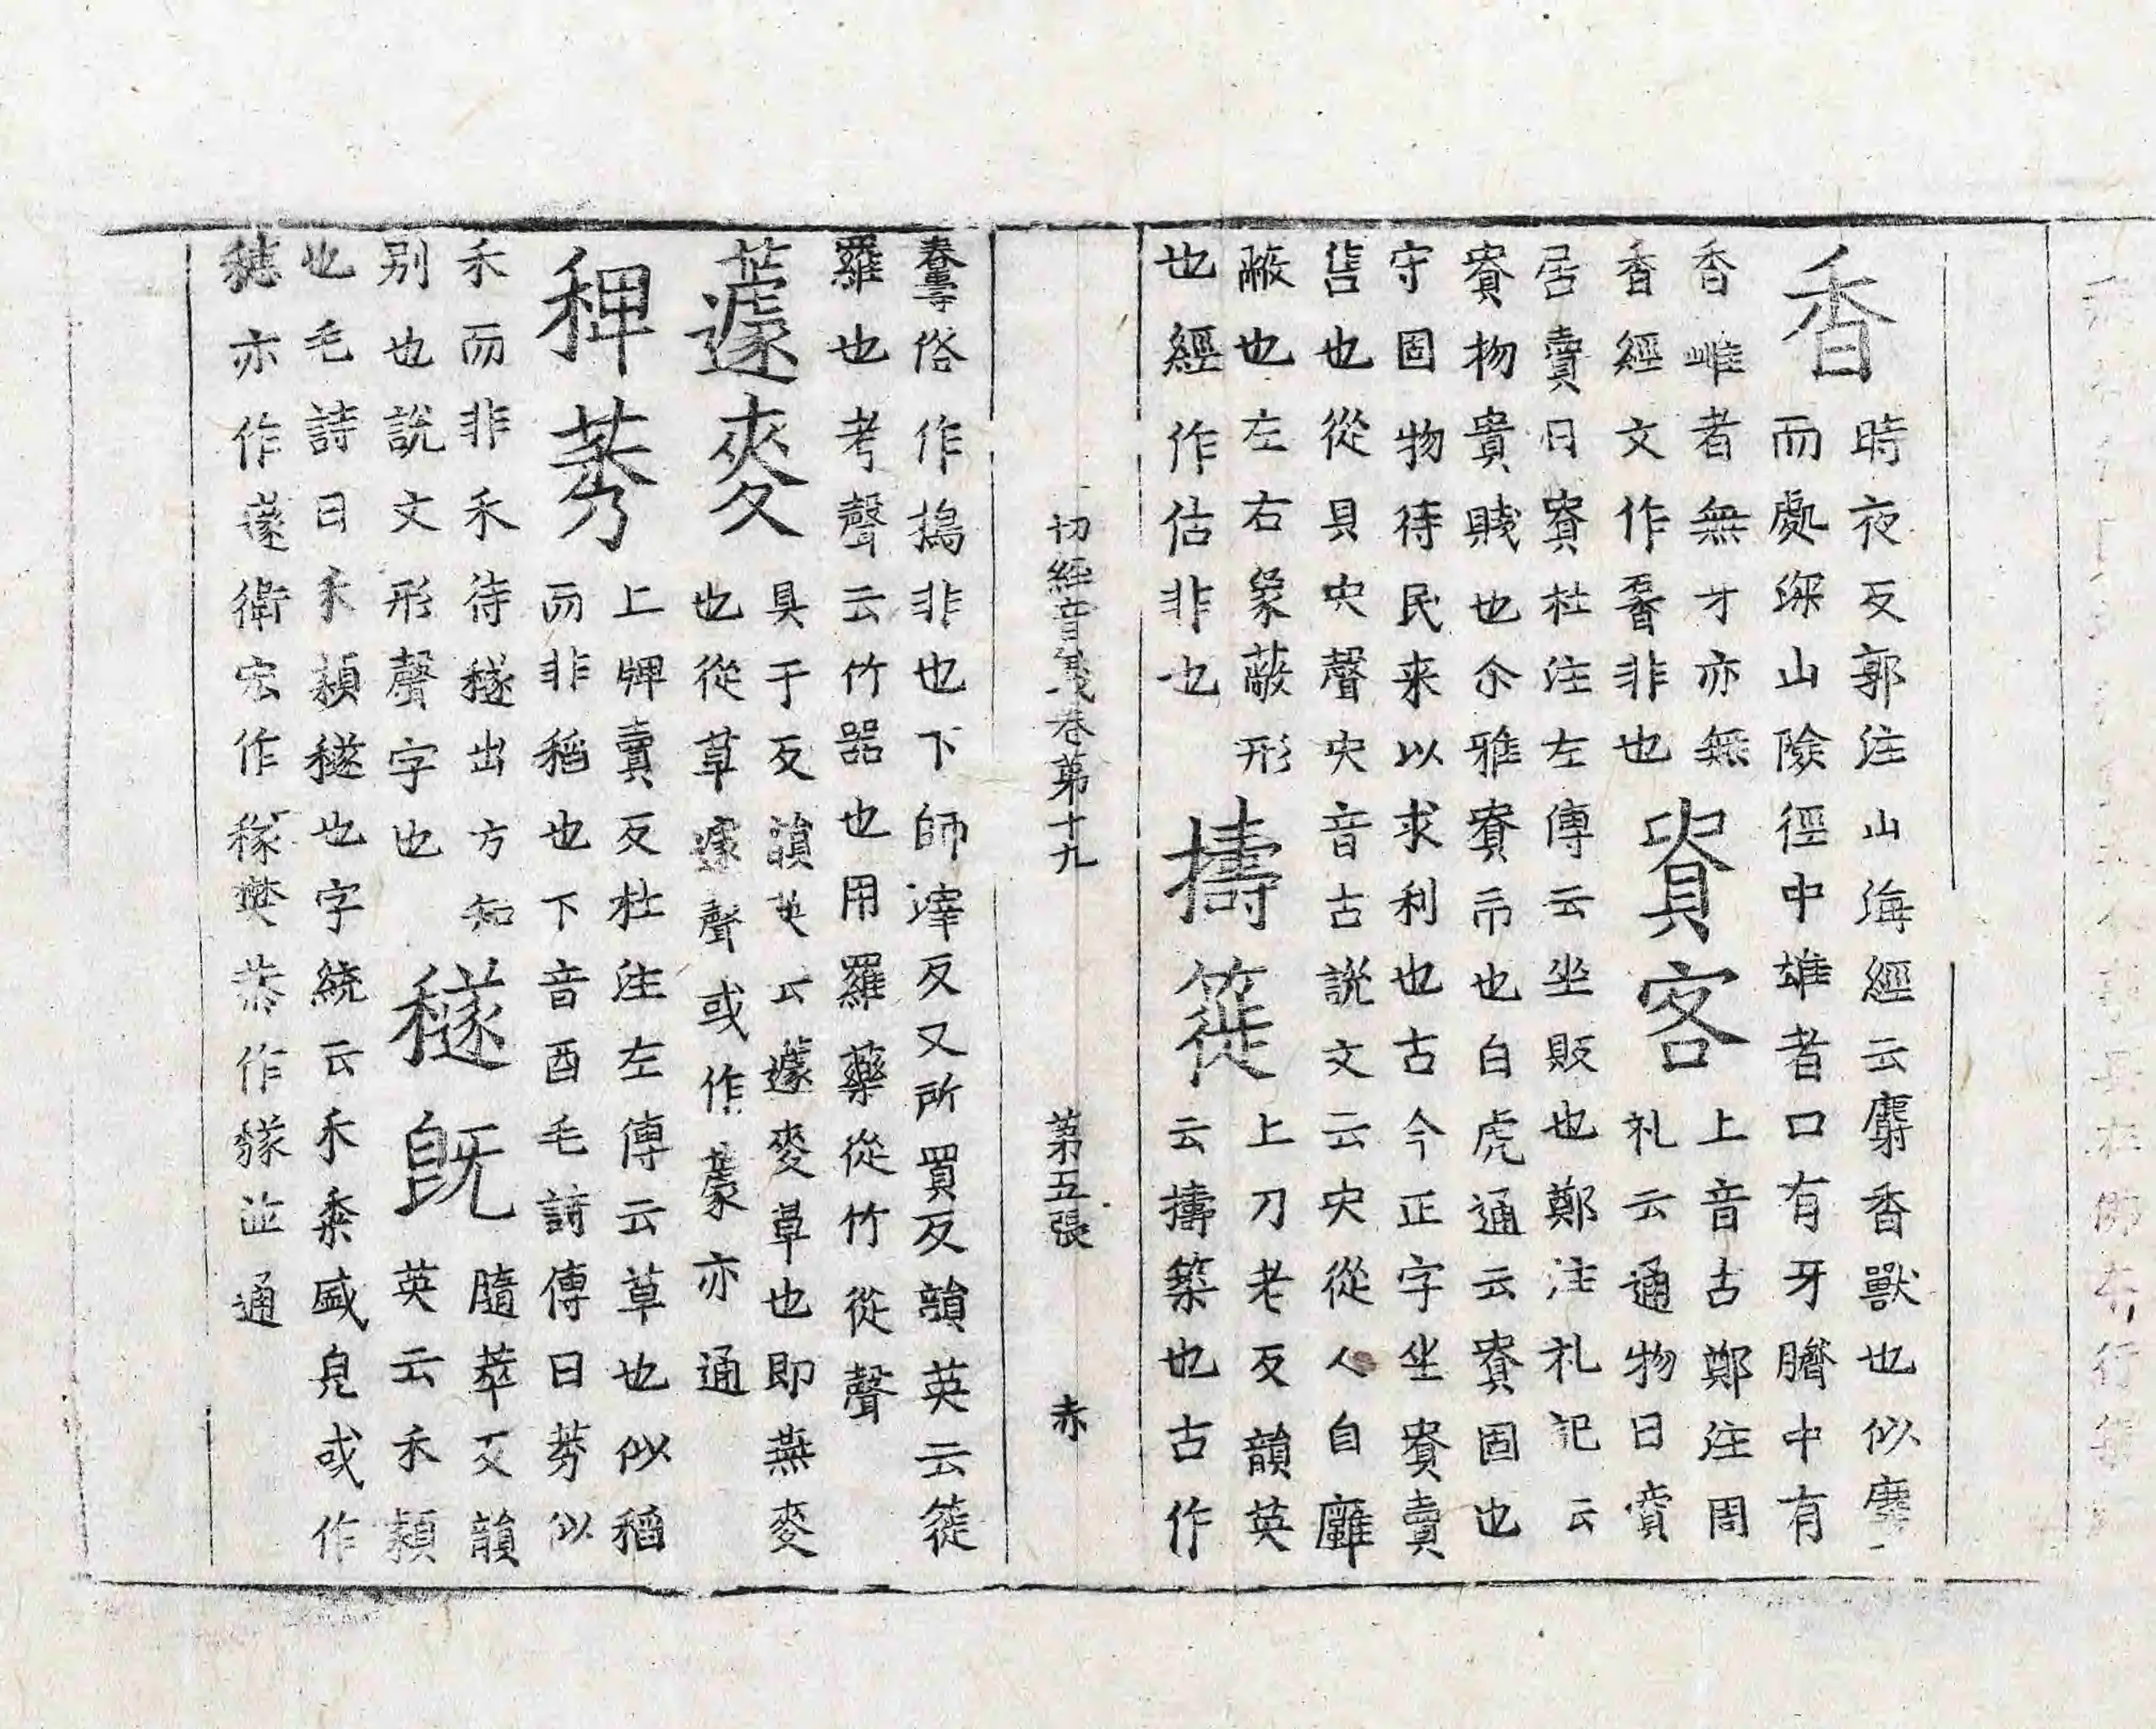 香
時夜反郭注山海經云麝香獸也似麞
而處深山險徑中雄者口有牙臍中有
香雌者無牙亦無
香經文作非也
賨客
上音古鄭注周
礼云通物曰賨
居賣曰賨杜注左傳云坐販也鄭注礼記云
賨物貴賤也尒雅賨市也白虎通云賨固也
守固物待民来以求利也古今正字坐賨賣
售也從貝㕻聲㕻音古說文云㕻從人自廱
蔽也左右象蔽形
也經作估非也
擣簁
上刀老反韻英
云擣築也古作
切經音義卷第十九 第五張 赤
俗作搗非也下師滓反又所買反韻英云簁
羅也考聲云竹器也用羅藥從竹從聲
蘧麥
具于反韻英云蘧麥草也即燕麥
也從草遽聲或作亦通
稗莠
上牌賣反杜注左傳云草也似稻
而非稻也下音酉毛詩傳曰莠似
禾而非禾待穟出方知
別也說文形聲字也
穟既
隨萃反韻
英云禾穎
也毛詩曰禾穎穟也字統云禾桼盛皃或作
亦作蓫衛宏作稼樊恭作並通